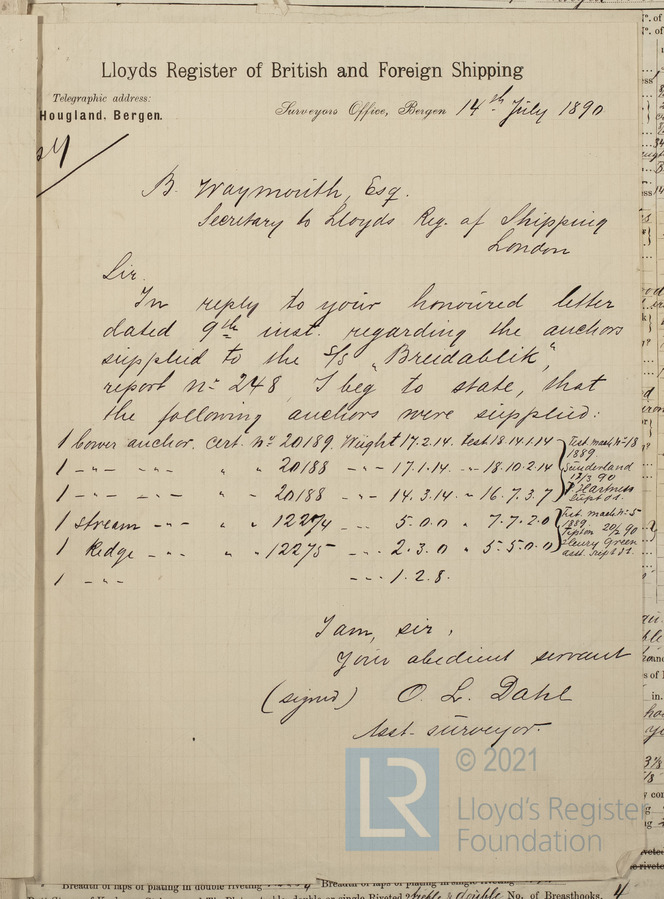 Lloyds Register of British and Foreign Shipping
Telegraphic address:
Hougland, Bergen.
Surveyors Office, Bergen 14th July 1890
B. Waymouth, Esq.
Secretary to Lloyds Reg. of Shipping
London
Sir.
In reply to your honoured letter
dated 9th inst. regarding the anchors
supplied to the S/S „Breidablik",
report No 248, I beg to state, that
the following anchors were supplied:
1 bower anchor. Cert. No 20189. Weight 17.2.14. test 18.14.1.14
1 -"- -"- " " 20188 -"- 17.1.14. -"- 18.10.2.14
1 -"- -"- " " 20188 -"- 14.3.14. " 16.7.3.7
Test. mach. No 18
1889
Sunderland
12/3 90
Hartness
Supt d.
1 Stream -"- " " 12274 -"- 5.0.0 " 7.7.2.0
1 Kedge -"- " " 12275 -"- 2.3.0 " 5.5.0.0
Test. mach. No 5
1889.
Tipton 20/2 90
Henry Green
asst. supt d.
1 -"- -"- 1.2.8.
I am, sir,
Your obedient servant
(signed) O. L. Dahl
Asst. surveyor.
LR
© 2021
Lloyd's Register
Foundation
Breadth of laps of plating in double riveting
Breadth of laps of plating in single riveting
double or single Riveted treble & double No. of Breasthooks, 4